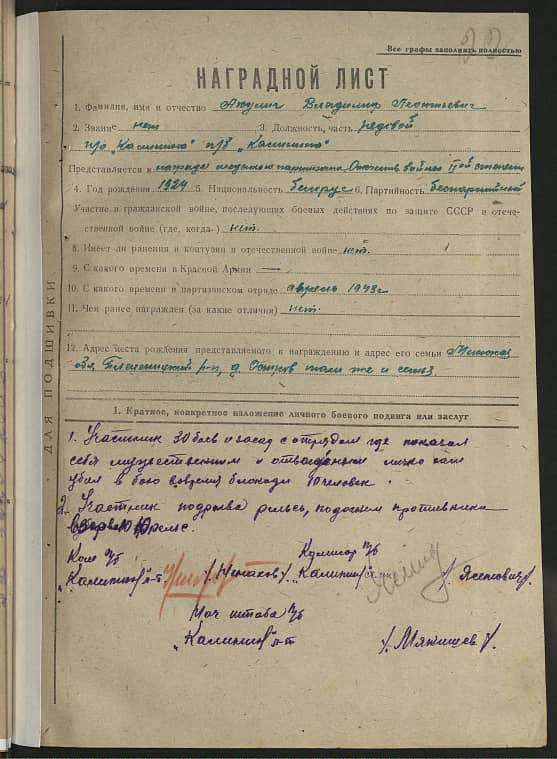 Все графы заполнять полностью
НАГРАДНОЙ ЛИСТ
1. Фамилия, имя и отчество Акулич Владимир Леонтьевич
2. Звание нет 3. Должность, часть рядовой
п/о "Калинина" п/б "Калинина"
Представляется к награде медалью партизана Отечеств войны II ой степени
4. Год рождения 1924 5. Национальность белорус 6. Партийность беспартийной
Участие в гражданской войне, последующих боевых действиях по защите СССР и отече-
ственной войне (где, когда) нет.
8. Имеет ли ранения и контузии в отечественной войне нет.
9. С какого времени в Красной Армии —
10. С какого времени в партизанском отряде апрель 1943 г
11. Чем ранее награжден (за какие отличия) нет.
12. Адрес места рождения представляемого к награждению и адрес его семьи Минская
обл, р-н, д. Остров там же и семья.
ДЛЯ ПОДШИВКИ
1. Краткое, конкретное изложение личного боевого подвига или заслуг
1. Участник 30 боев и засад с отрядом где показал
себя мужественным и отважным лично сам
убил в бою вовремя блокады 10 человек.
2. Участник подрыва рельс, подорвал противника
рельс.
Ком п/б Комиссар п/б
"Калинин" л-т "Калинин" /Ясинович/.
Нач штаба п/б
"Калинин" л-т /. Мякишев /.